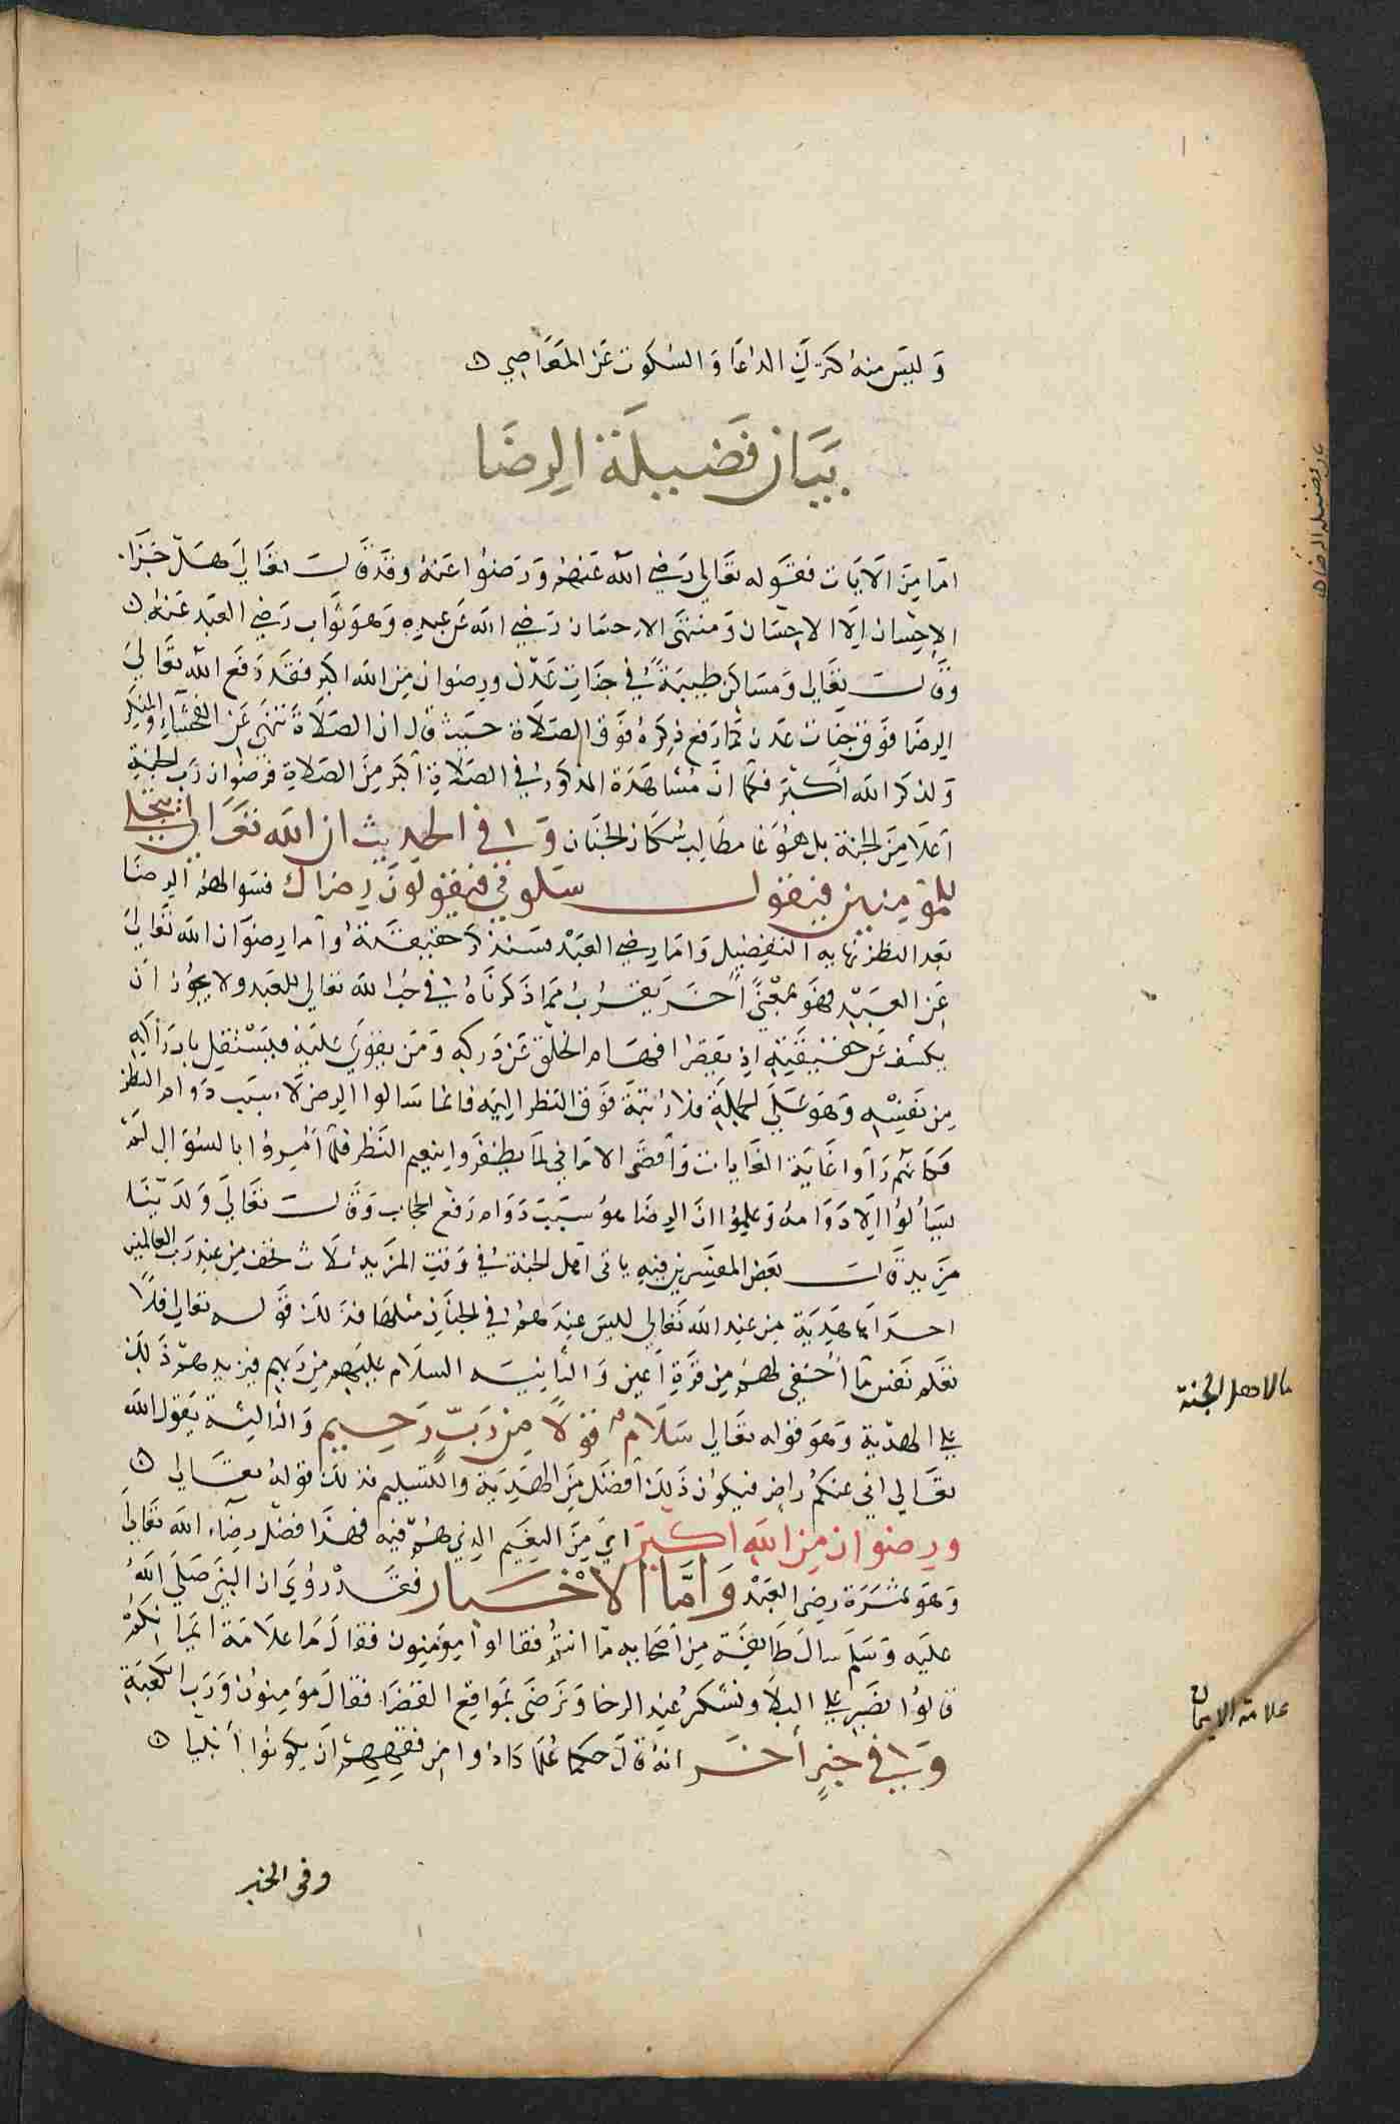 وليس منه ترك الدعا والسكوت عن المعاصي
بيان فضيلة الرضا
بيان فضيلة الرضا
اما من الآيات فقوله تعالي رضي الله عنهم ورضوا عنه وقد قال تعالي هل جزا
الاحسان الا الاحسان ومنتهى الاحسان رضي الله عن عبده وهو ثواب رضي العبد عنه
وقال تعالي ومساكن طيبة في جنات عدن ورضوان من الله اكبر فقد رفع الله تعالي
الرضا فوق جنات عدن كما رفع ذكره فوق الصلاة حيث قال ان الصلاة تنهي عن الفحشاء والمنكر
ولذكر الله أكبر فكما ان مشاهدة المذكور في الصلاة أكبر من الصلاة فرضوان رب الجنة
أعلا من الجنة بل هو غا مطالب سكان الجنان و في الحديث ان الله تعالي يتجلي
للمؤمنين فيقول سلوني فيقولون رضاك فسوالهم الرضا
بعد النظر نهاية التفضيل واما رضي العبد فسنذكر حقيقته وأما رضوان الله تعالي
عن العبد فهو بمعني آخر يقرب مما ذكرناه في حب الله تعالي للعبد ولا يجوز أن
يكشف عن حقيقته اذ يقصر افهام الخلق عن دركه ومن يقوي عليه فيستقل بادراكه
من نفسه وهو علي الجملة فلا رتبة فوق النظر اليه فانما سالوا الرضي لأنه سبب دوام النظر
فكانهم رأوا غاية الغايات وأقصى الاماني لما يظفروا بنعيم النظر فلما أمروا بالسؤال لم
يسألوا الا دوامه وعلموا ان الرضا هو سبب دوام رفع الحجاب وقال تعالي ولدينا
مزيد قال بعض المفسرين فيه ياتى أهل الجنة في وقت المزيد ثلاث تحف من عند رب العالمين
احداها هدية من عند الله تعالي ليس عندهم في الجنان مثلها فذلك قوله تعالي فلا
تعلم نفس ما أخفي لهم من قرة أعين والثانية السلام عليهم من ربهم فيزيدهم ذلك
مالاهل الجنة
علي الهدية وهو قوله تعالي سلام قولا من رب رحيم والثالثة يقول الله
تعالي اني عنكم راض فيكون ذلك أفضل من الهدية والتسليم فذلك قوله تعالي
ورضوان من الله أكبر اي من النعيم الذي هم فيه فهذا فضل رضاء الله تعالي
وهو ثمرة رضي العبد وأما الأخبار فقد روي ان النبي صلي الله
عليه وسلم سال طايفة من أصحابه ما انتم فقالوا مؤمنون فقال ما علامة ايمانكم
قالوا نصبر علي البلا ونشكر عند الرخا ونرضى بمواقع القضا فقال مؤمنون ورب الكعبة
علامة الايمان
و في خبر آخر انه قال حكما علما كادوا من فقههم أن يكونوا أنبيا
وفى الخبر